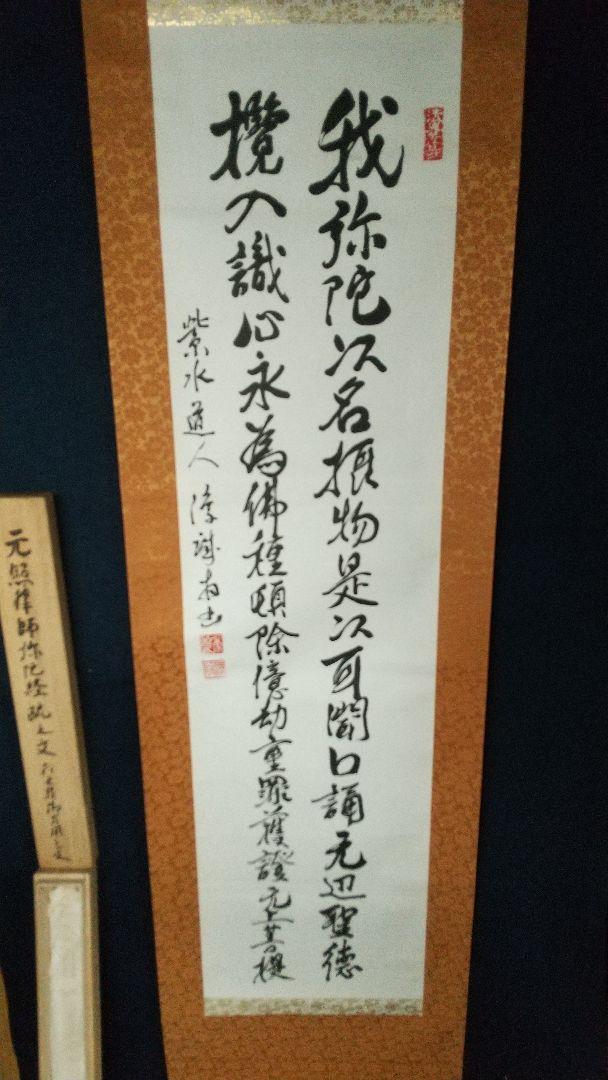 我弥陀以名摂物是以耳聞口誦无辺聖徳
攬入識心永為佛種頓除億劫重罪獲證无上菩提
紫水道人
元照律師弥陀経疏之文